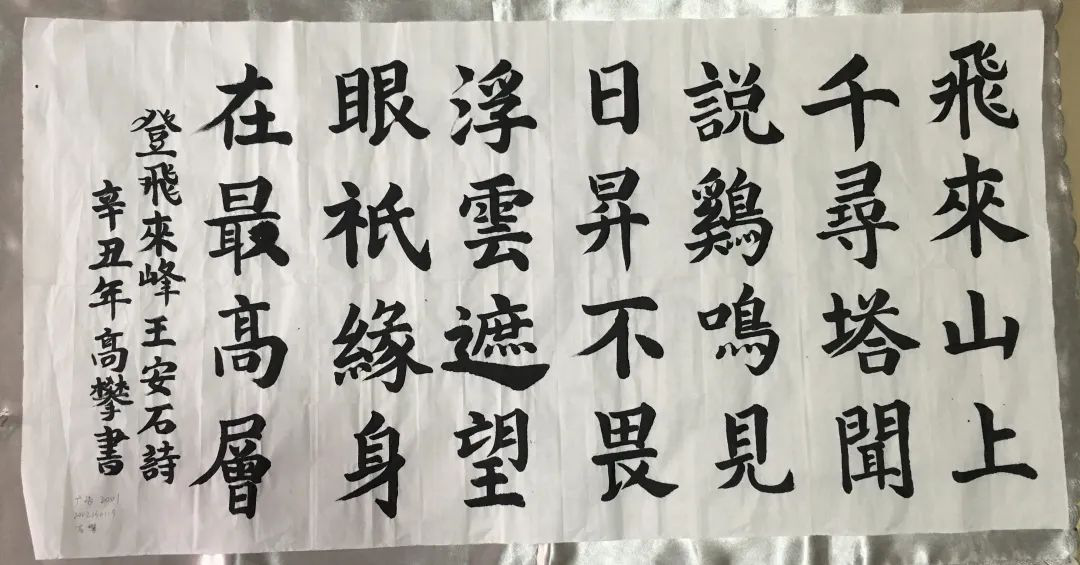 飛來山上
千尋塔聞
説鷄鳴見
日昇不畏
浮雲遮望
眼祇緣身
在最高層
登飛來峰王安石詩
辛丑年高攀書